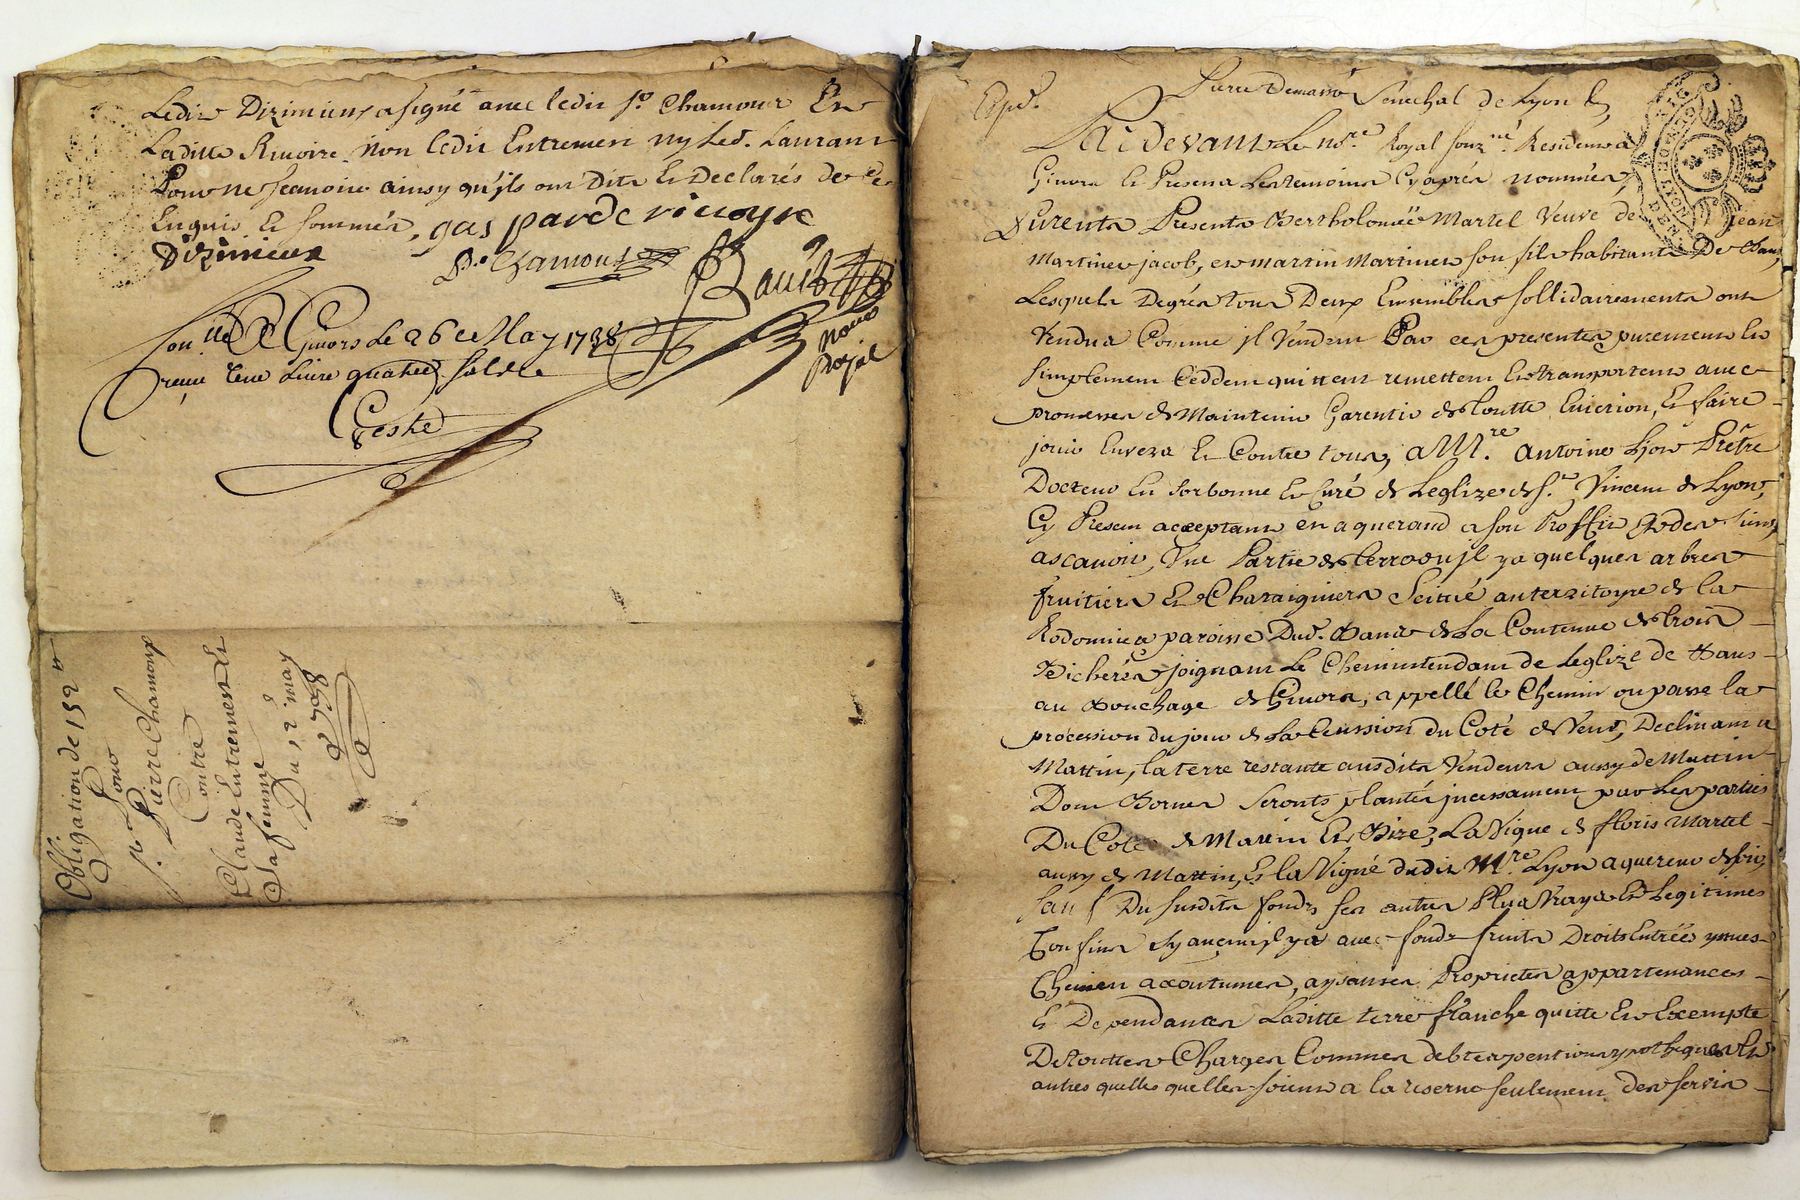 Ledit Dizimieux a signé avec ledit Sr. Chamoux Et
Laditte Rivoire non ledit Entremen ny Led. Laurant
Pour ne scavoir ainsy qu'ils ont Dits Et Declarés de ce
Enquis Et sommés, gas parde rivoyre
Dizimieux
P. Chamoux
Bault
Nore
Royal
Conlle A Givors Le 26e May 1738
receu une Livre quatre sols
Geste
Obligation de 152 tt
Pour
Sr. Pierre Chamoux
Contre
Claude Entremen Et
Sa femme
Du 12e may
1738
Expd.
Pierre Demasso Sénéchal de Lyon
Pardevant Le Nore. Royal Résident a
Givors Et Présents Les temoins Cy après nommés,
Furents Présents Bertholomée Martel Veuve de Jean
Martinet jacob, et martin Martinet son fils habitants De Bans
Lesquels Degrés tous Deux Ensembles sollidairements ont
Vendus Comme jl Vendent Par ces presentes purement Et
Simplement Ceddent quittent remettent Et transportent avec
promesses de Maintenir Garentir de toutte Eviction, Et faire
jouir Envers Et Contre tous, a Mre. Antoine Lyon Prêtre
Docteur En Sorbonne Et Curé de Leglize de St. Vincent de Lyon,
Cy Present acceptant en aquerand a son Proffit Et des siens,
ascavoir, Une Partie de terre ou jl ya quelques arbres
fruitiers Et Chataigniers Scittué au territoyre de la
Rodomies paroisse Dud. Bans de La Contenue de trois
Bicherés joignant Le Chemin tendant de Leglize de Bans
au Bouchage de Givors, appellé le Chemin ou passe la
procession du jour de LaCenssion Du Coté de Vent, Declinant a
Mattin, la terre restante ausdits Vendeurs aussy de Mattin
Dont Bornes Seronts plantés jncessament par Les parties
Du Coté de Mattin Et Bize, La Vigne de floris Martel
aussy de Mattin, Et la Vigne dudit Mre. Lyon aquereur de soir,
sauf Du susdits fonds ses autres Plus Vrays Et Legitimes
Confins Sy aucuns jl ya avec fonds fruits Droits Entrées yssues
Chemin accoutumés, aysances Proprietes appartenances
Et Dependances Laditte terre franche quitte Et Exempte
De touttes Charges Commes debtes pentions ypotheques Et
autres quelles quelles soient a la reserve seulement des servis